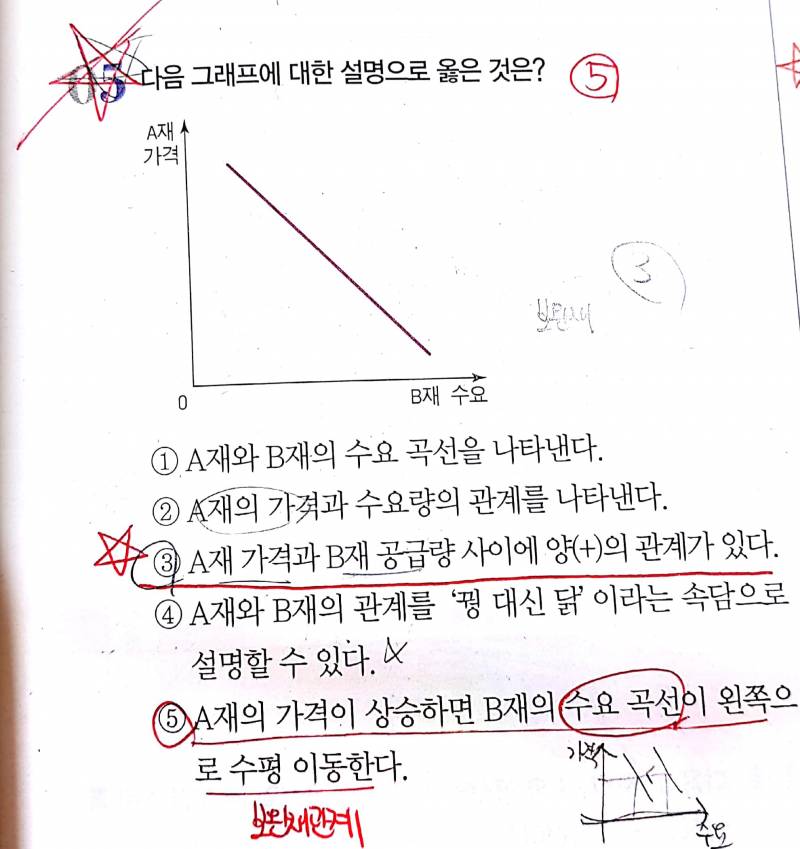 05 다음 그래프에 대한 설명으로 옳은 것은? ⑤
A재
가격
3
보완재
0
B재 수요
① A재와 B재의 수요 곡선을 나타낸다.
② A재의 가격과 수요량의 관계를 나타낸다.
③ A재 가격과 B재 공급량 사이에 양(+)의 관계가 있다.
④ A재와 B재의 관계를 ‘꿩 대신 닭’이라는 속담으로
설명할 수 있다. X
⑤ A재의 가격이 상승하면 B재의 수요 곡선이 왼쪽으
로 수평 이동한다.
가격
보완재관계
수요